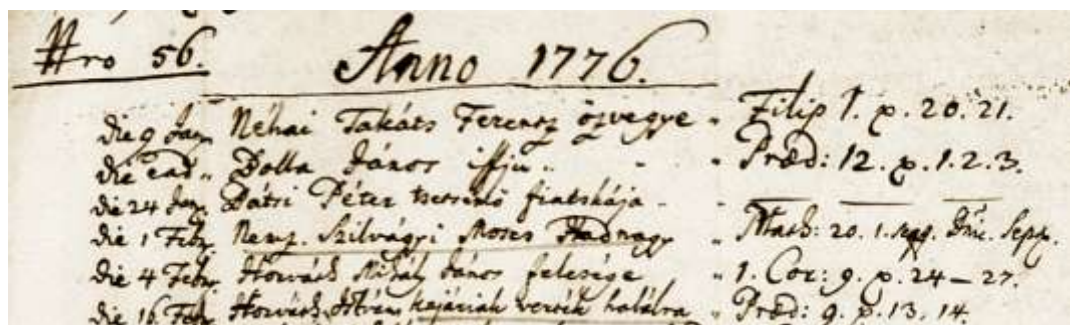 Nro 56. Anno 1776.
die 9 Jan. Néhai Takáts Ferencz özvegye " Filip 1. v. 20. 21.
die ead. Dolla János iffju " Præd: 12. v. 1. 2. 3.
die 24 Jan. Dátsi Péter tsetsemö fiatskája "
die 1 Febr. Nemz. Szilvágyi Moses Hadnagy " Math: 20. 1. Dnic. Sept.
die 4 Febr. Horváth Mihály János felesége " 1. Cor: 9. v. 24–27.
die 16 Febr. Horváth István kajáriak verték halálra " Præd: 9. v. 13. 14.